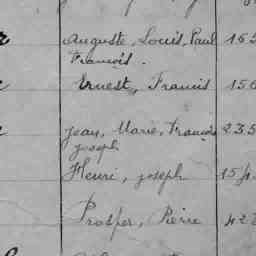 Auguste, Louis, Paul 165
François.
Ernest, Francis 156
Jean, Marie, François 235
Joseph
Henri, Joseph 154
Prosper, Pierre 422